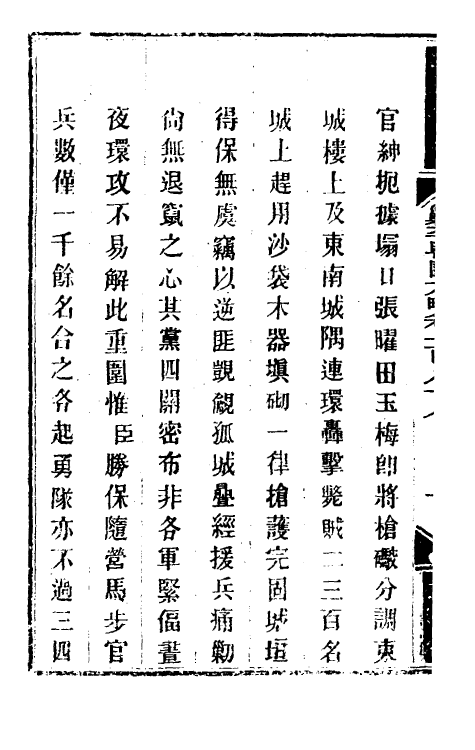 官紳扼據塌口張曜田玉梅卽將槍礮分調東
城樓上及東南城隅連環轟擊斃賊二三百名
城上趕用沙袋木器塡砌一律搶護完固城垣
得保無虞竊以逆匪覬覦孤城疊經援兵痛勦
尙無退竄之心其黨四關密布非各軍緊偪晝
夜環攻不易解此重圍惟臣勝保隨營馬步官
兵數僅一千餘名合之各起勇隊亦不過三四